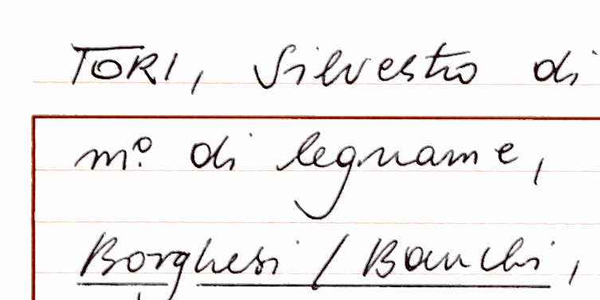 TORI, Silvestro di
mº. di legname,
Borghesi / Banchi,